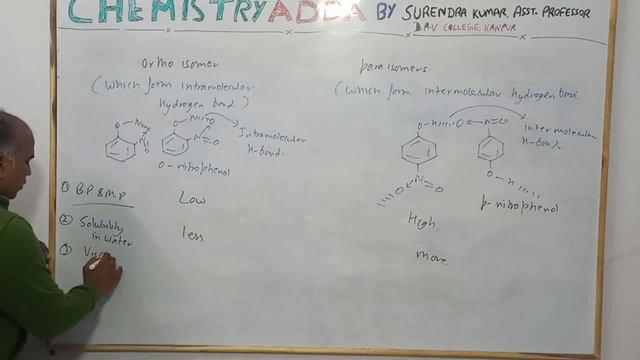 CHEMISTRY ADDA BY SURENDRA KUMAR, ASST. PROFESSOR
D.A.V COLLEGE, KANPUR
Ortho isomer
(which form intramolecular
hydrogen bond)
O H O
N
O
O H O
N O
Intramolecular
H-bond.
O-nitrophenol
para isomers
(which form intermolecular hydrogen bond
O-H O N=O
intermolecular
H-bond.
O-H
N
O O
p-nitrophenol
① B.P & M.P Low High
② Solubility
in water less more
③ Vis